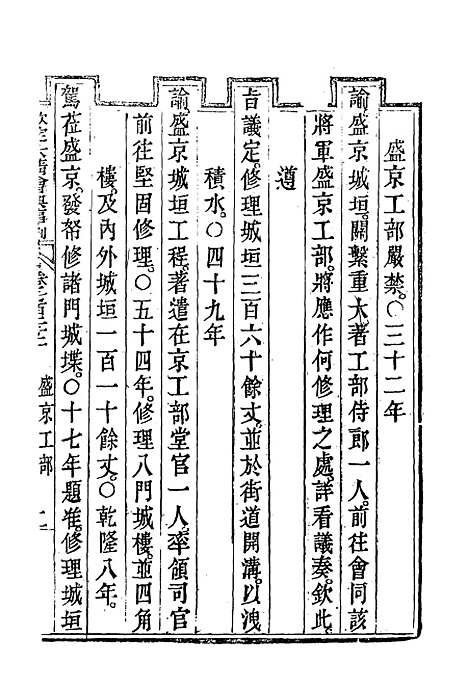 盛京工部嚴禁。○三十二年
諭盛京城垣。關繫重大。著工部侍郎一人。前往會同該
將軍盛京工部。將應作何修理之處。詳看議奏。欽此。
遵
旨議定。修理城垣三百六十餘丈。並於街道開溝。以洩
積水。○四十九年
諭盛京城垣工程。著遣在京工部堂官一人。率領司官
前往堅固修理。○五十四年。修理八門城樓。並四角
樓。及內外城垣一百一十餘丈。○乾隆八年。
駕莅盛京。發帑修諸門城堞。○十七年題准。修理城垣
欽定大清會典事例 盛京工部